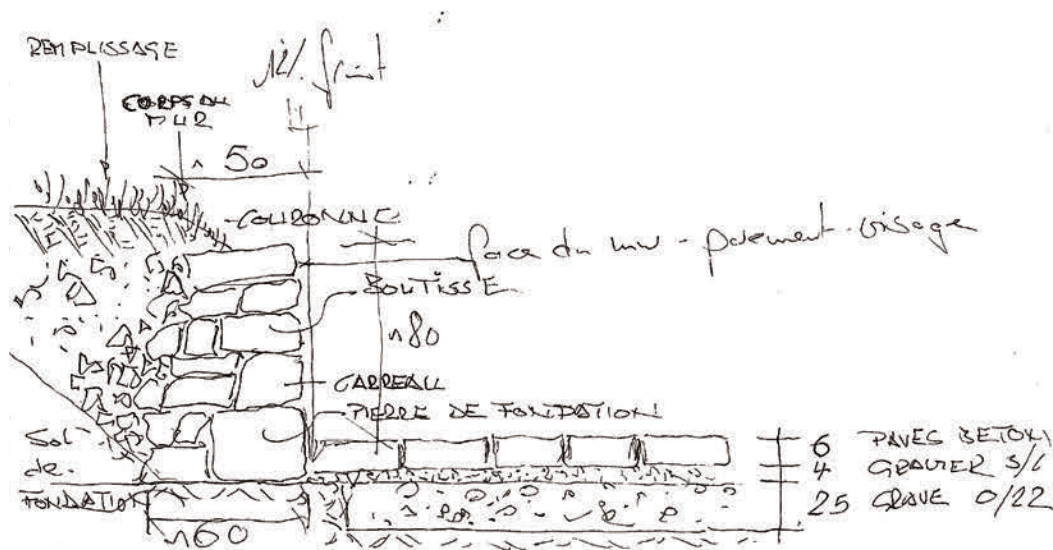 REMPLISSAGE
CORPS DU
MUR
12%. fruit
~ 50
COURONNE
face du mur - parement - visage
BOUTISSE
~80
CARREAU
PIERRE DE FONDATION
Sol
de
FONDATION
~60
6 PAVES BETON
4 GRAVIER
25 GRAVE 0/22